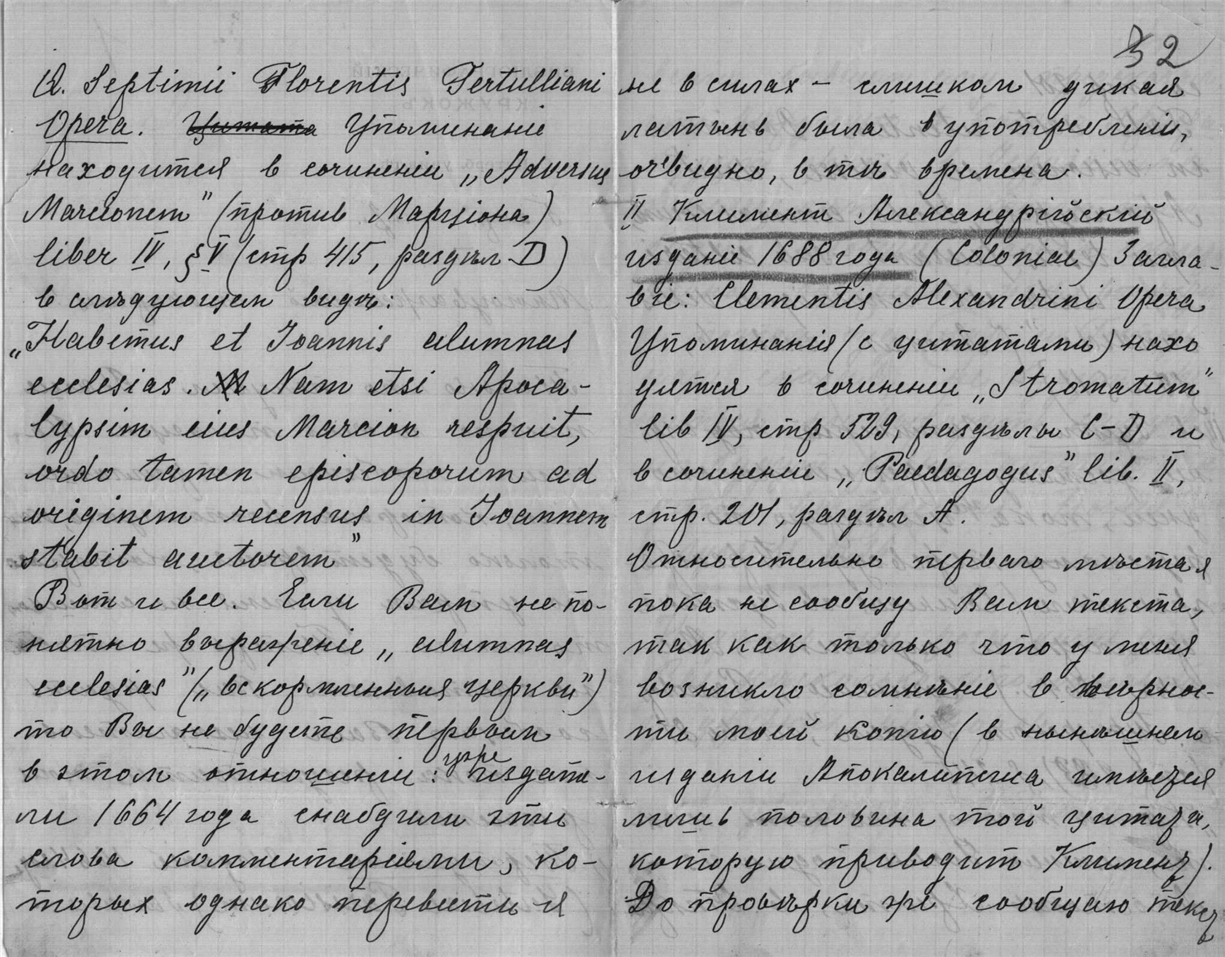 32
Q. Septimii Florentis Tertulliani
Opera. Цитата Упоминанiе
находится в сочиненiи „Adversus
Marcionem” (против Марцiона)
liber IV, § V (стр 415, раздѣл D)
в слѣдующем видѣ:
„Habemus et Ioannis alumnas
ecclesias. Nam etsi Apoca-
lypsim eius Marcion respuit,
ordo tamen episcoporum ad
originem recensus in Ioannem
stabit auctorem”
Вот и все. Если Вам не по-
нятно выраженiе „alumnas
ecclesias” („вскормленныя церкви”)
то Вы не будете первым
в этом отношенiи: уже издате-
ли 1664 года снабдили эти
слова комментарiями, ко-
торых однако перевести я
не в силах – слишком дикая
латынь была в употребленiи,
очевидно, в тѣ времена.
II Климент Александрiйскiй
изданiе 1688 года (Coloniae) Загла-
вiе: Clementis Alexandrini Opera
Упоминанiя (с цитатами) нахо
дятся в сочиненiи „Stromatum”
lib IV, стр 529, раздѣлы C–D и
в сочиненiи „Paedagogus” lib. II,
стр. 201, раздѣл A.
Относительно перваго мѣста я
пока не сообщу Вам текста,
так как только что у меня
возникло сомнѣнiе в вѣрнос-
ти моей копiи (в нынѣшнем
изданiи Апокалипсиса имѣется
лишь половина той цитаты,
которую приводит Климент).
До провѣрки же сообщаю текст